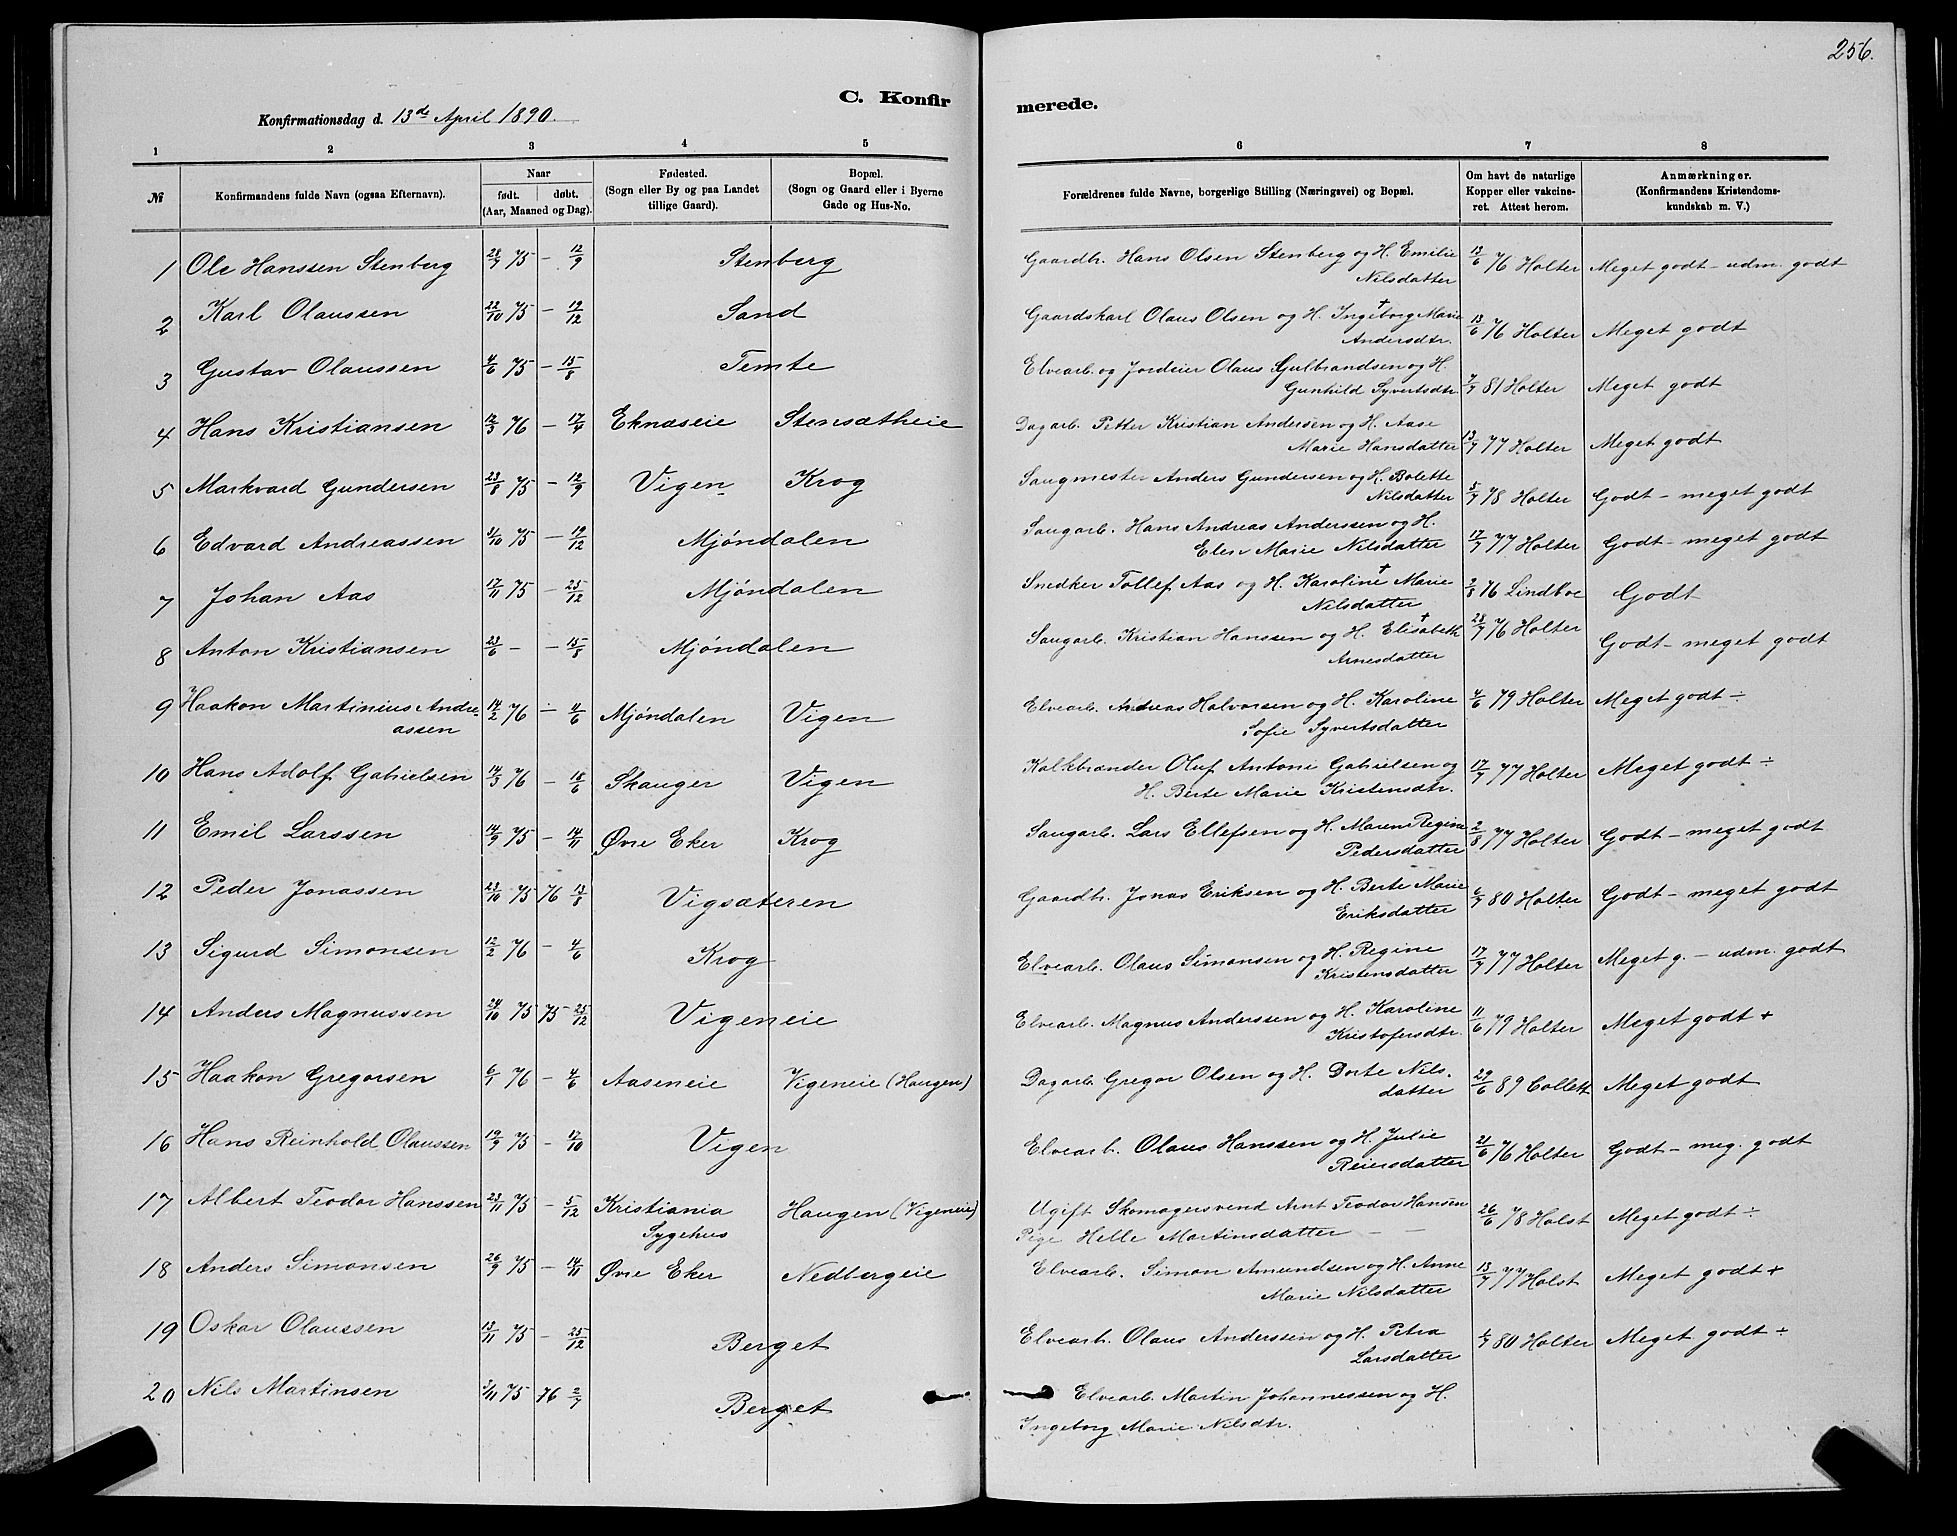 256.
C. Konfir
merede.
Konfirmationsdag d. 13de April 1890.
1 2 3 4 5 6 7 8
№ Konfirmandens fulde Navn (ogsaa Efternavn). Naar født. døbt. (Aar, Maaned og Dag). Fødested. (Sogn eller By og paa Landet tillige Gaard). Bopæl. (Sogn og Gaard eller i Byerne Gade og Hus-No. Forældrenes fulde Navne, borgerlige Stilling (Næringsvei) og Bopæl. Om havt de naturlige Kopper eller vakcineret. Attest herom. Anmærkninger. (Konfirmandens Kristendomskundskab m. V.)
1 Ole Hanssen Stenberg 28/7 75 – 12/9 Stenberg Gaardbr. Hans Olsen Stenberg og H. Emilie 13/6 76 Holter Meget godt – udm. godt
Nilsdatter
2 Karl Olaussen 22/10 75 – 19/12 Sand Gaardskarl Olaus Olsen og H. Ingeborg † Marie 13/6 76 Holter Meget godt
Andersdtr.
3 Gustav Olaussen 4/6 75 – 15/8 Temte Elvearb. og Jordeier Olaus Gulbrandsen og H.
Gunhild Syvertsdtr 7/7 81 Holter Meget godt
4 Hans Kristiansen 12/3 76 – 17/4 Eknæseie Stensætheie Dagarb. Petter Kristian Andersen og H. Aase
Marie Hansdatter 13/7 77 Holter Meget godt
5 Markvard Gundersen 23/8 75 – 12/9 Vigen Krog Saugmester Anders Gundersen og H. Bolette
Nilsdatter 5/7 78 Holter Godt – meget godt
6 Edvard Andreassen 3/10 75 – 19/12 Mjøndalen Saugarb. Hans Andreas Anderssen og H.
Elen Marie Nilsdatter 17/7 77 Holter Godt – meget godt
7 Johan Aas 17/11 75 – 25/12 Mjøndalen Snedker Tollef Aas og H. Karoline † Marie 2/8 76 Lindboe Godt
Nilsdatter
8 Anton Kristiansen 23/6 – – 15/8 Mjøndalen Saugarb. Kristian Hanssen og H. Elisabeth † 28/7 76 Holter Godt – meget godt
Arnesdatter
9 Haakon Martinius Andre- 14/2 76 – 4/6 Mjøndalen Vigen Elvearb. Andreas Halvorsen og H. Karoline 4/6 79 Holter Meget godt ÷
assen Sofie Syvertsdatter
10 Hans Adolf Gabrielsen 14/3 76 – 18/6 Skauger Vigen Kalkbrænder Oluf Antoni Gabrielsen og 17/7 77 Holter Meget godt ÷
H. Berte Marie Kristensdtr.
11 Emil Larssen 14/9 75 – 14/11 Øvre Eker Krog Saugarb. Lars Ellefsen og H. Maren Regine 2/8 77 Holter Godt – meget godt
Pedersdatter
12 Peder Jonassen 23/10 75 76 13/8 Vigsæteren Gaardbr. Jonas Eriksen og H. Berte Marie 6/7 80 Holter Godt – meget godt
Eriksdatter
13 Sigurd Simonsen 12/2 76 – 4/6 Krog Elvearb. Olaus Simonsen og H. Regine 17/7 77 Holter Meget g. – udm. godt
Kristensdatter
14 Anders Magnussen 24/10 75 75 25/12 Vigeneie Elvearb. Magnus Anderssen og H. Karoline 11/6 79 Holter Meget godt +
Kristofersdtr.
15 Haakon Gregorsen 6/1 76 – 4/6 Aaseneie Vigeneie (Haugen) Dagarb. Gregor Olsen og H. Dorte Nils- 29/6 89 Collett Meget godt
datter
16 Hans Reinhold Olaussen 19/9 75 – 17/10 Vigen Elvearb. Olaus Hanssen og H. Julie 21/6 76 Holter Godt – meg. godt
Reiersdatter
17 Albert Teodor Hanssen 23/11 75 – 5/12 Kristiania Haugen (Vigeneie) Ugift Skomagersvend Arnt Teodor Hansen 26/6 78 Holst Meget godt ÷
Sygehus Pige Helle Martinsdatter –
18 Anders Simonsen 26/9 75 – 14/11 Øvre Eker Nedbergeie Elvearb. Simon Amundsen og H. Anne 13/7 77 Holst Meget godt +
Marie Nilsdatter
19 Oskar Olaussen 13/11 75 – 25/12 Berget Elvearb. Olaus Anderssen og H. Petra 6/7 80 Holter Meget godt ÷
Larsdatter
20 Nils Martinsen 3/11 75 76 2/7 Berget Elvearb. Martin Johannessen og H.
Ingeborg Marie Nilsdtr.